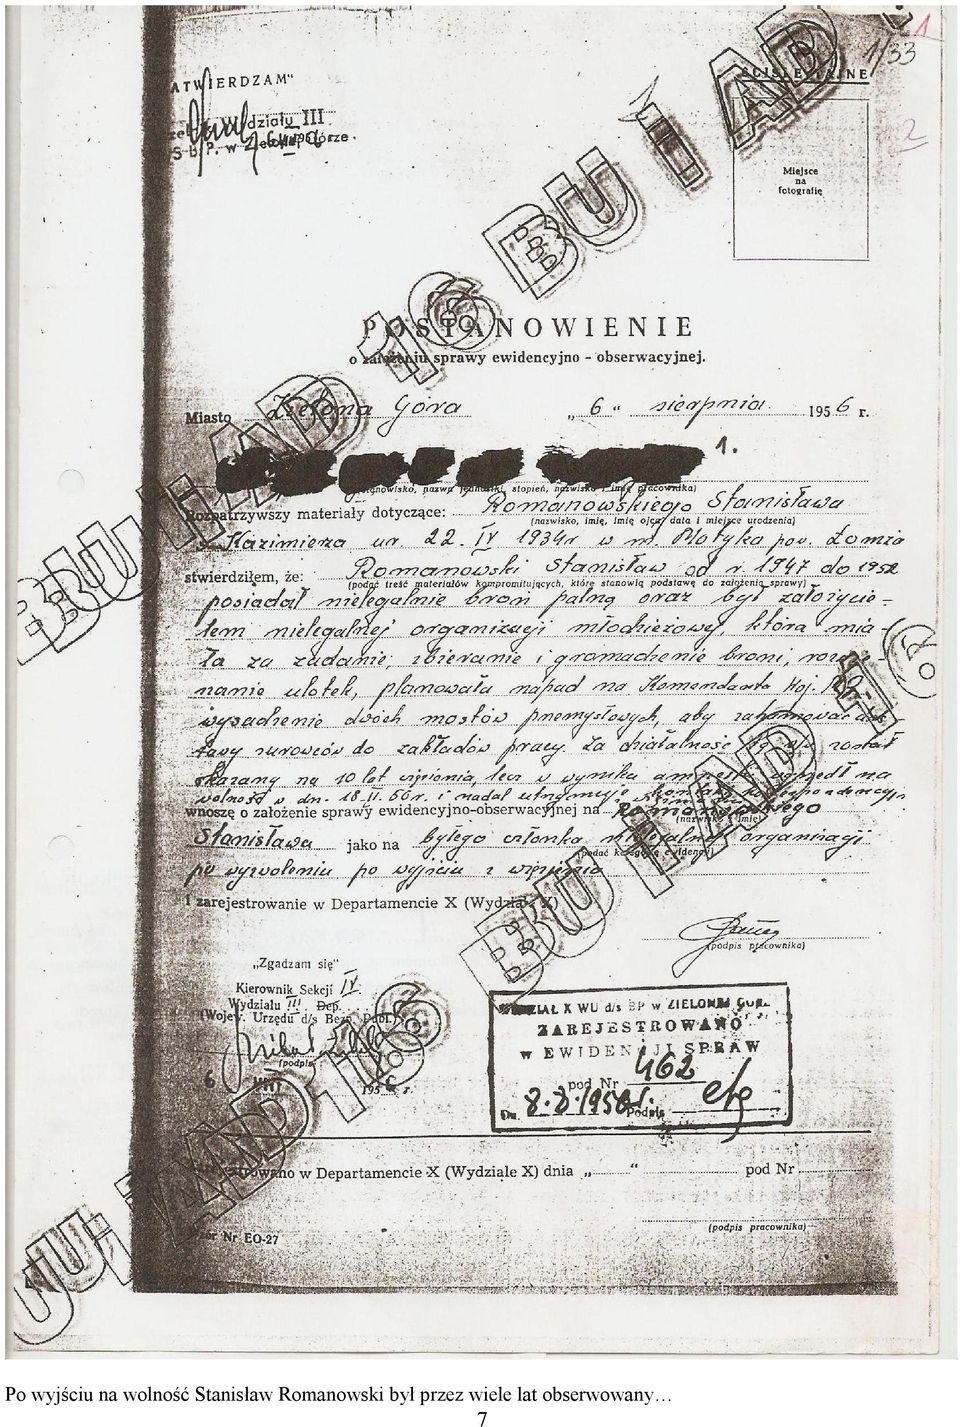 1
1/33
„ZATWIERDZAM"
ŚCIŚLE TAJNE
Wydziału III
w Zielonej Górze
2
Miejsce
na
fotografię
POSTANOWIENIE
o założeniu sprawy ewidencyjno - obserwacyjnej.
Miasto Zielona Góra „ 6 " sierpnia 1956 r.
1.
(stanowisko, nazwa jednostki, stopień, nazwisko i imię pracownika)
Rozpatrzywszy materiały dotyczące: Romanowskiego Stanisława
(nazwisko, imię, imię ojca, data i miejsce urodzenia)
s. Kazimierza ur. 22. IV 1934r w m. Płotyka pow. Łomża
stwierdziłem, że: Romanowski Stanisław od r. 1947 do 1952
(podać treść materiałów kompromitujących, które stanowią podstawę do założenia sprawy)
posiadał nielegalnie broń palną oraz był założycie-
lem nielegalnej organizacji młodzieżowej, która mia-
ła za zadanie; zbieranie i gromadzenie broni, rozrzu-
canie ulotek, planowała napad na Komendanta Woj.
wysadzenie dwóch mostów przemysłowych, aby zahamować dos-
tawy surowców do zakładów pracy. Za działalność tą został
skazany na 10 lat więzienia, lecz w wyniku amnestii wyszedł na
wolność w dn. 18.II.56r. i nadal utrzymuje kontakt korespondencyjny
wnoszę o założenie sprawy ewidencyjno-obserwacyjnej na Romanowskiego
(nazwisko, imię)
Stanisława jako na byłego członka nielegalnej organizacji
(podać kategorię ewidencji)
po wyzwoleniu po wyjściu z więzienia
i zarejestrowanie w Departamencie X (Wydziale X)
(podpis pracownika)
„Zgadzam się"
Kierownik Sekcji IV
Wydziału III Dep.
(Wojew. Urzędu d/s Bezp. Publ.)
(podpis)
6 VIII 1956 r.
WYDZIAŁ X WU d/s BP w ZIELONEJ GÓRZE
ZAREJESTROWANO
w EWIDENCJI SPRAW
pod Nr 462
Dn. 8.8.1956 r. Podpis
Zarejestrowano w Departamencie X (Wydziale X) dnia „ " pod Nr
(podpis pracownika)
Wzór Nr EO-27
BU IAD 16 BU IAD
BU IAD 16
BU IAD 16
BU IAD 16
Po wyjściu na wolność Stanisław Romanowski był przez wiele lat obserwowany…
7